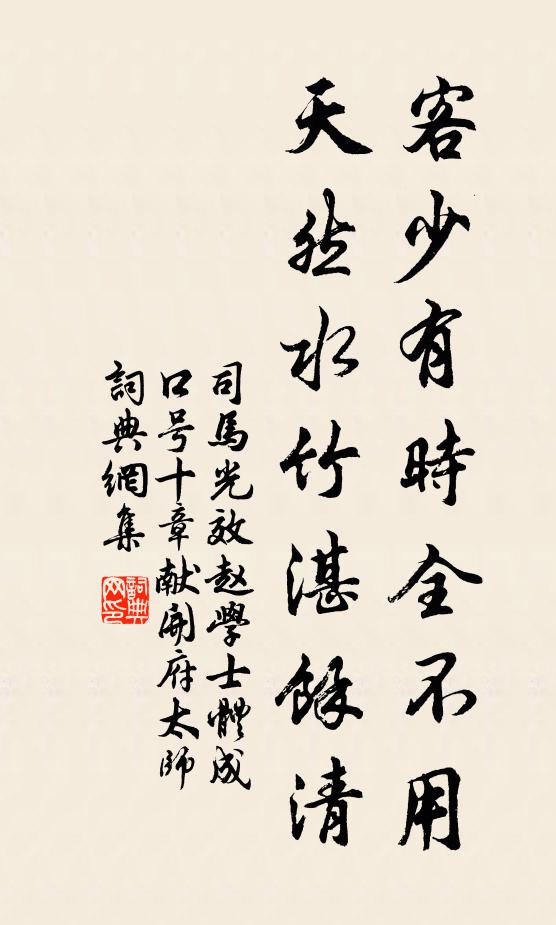 客少有時全不用
天然水竹湛餘清
司馬光效赵學士體成
口号十章献開府太師
詞典網集
詞典網印